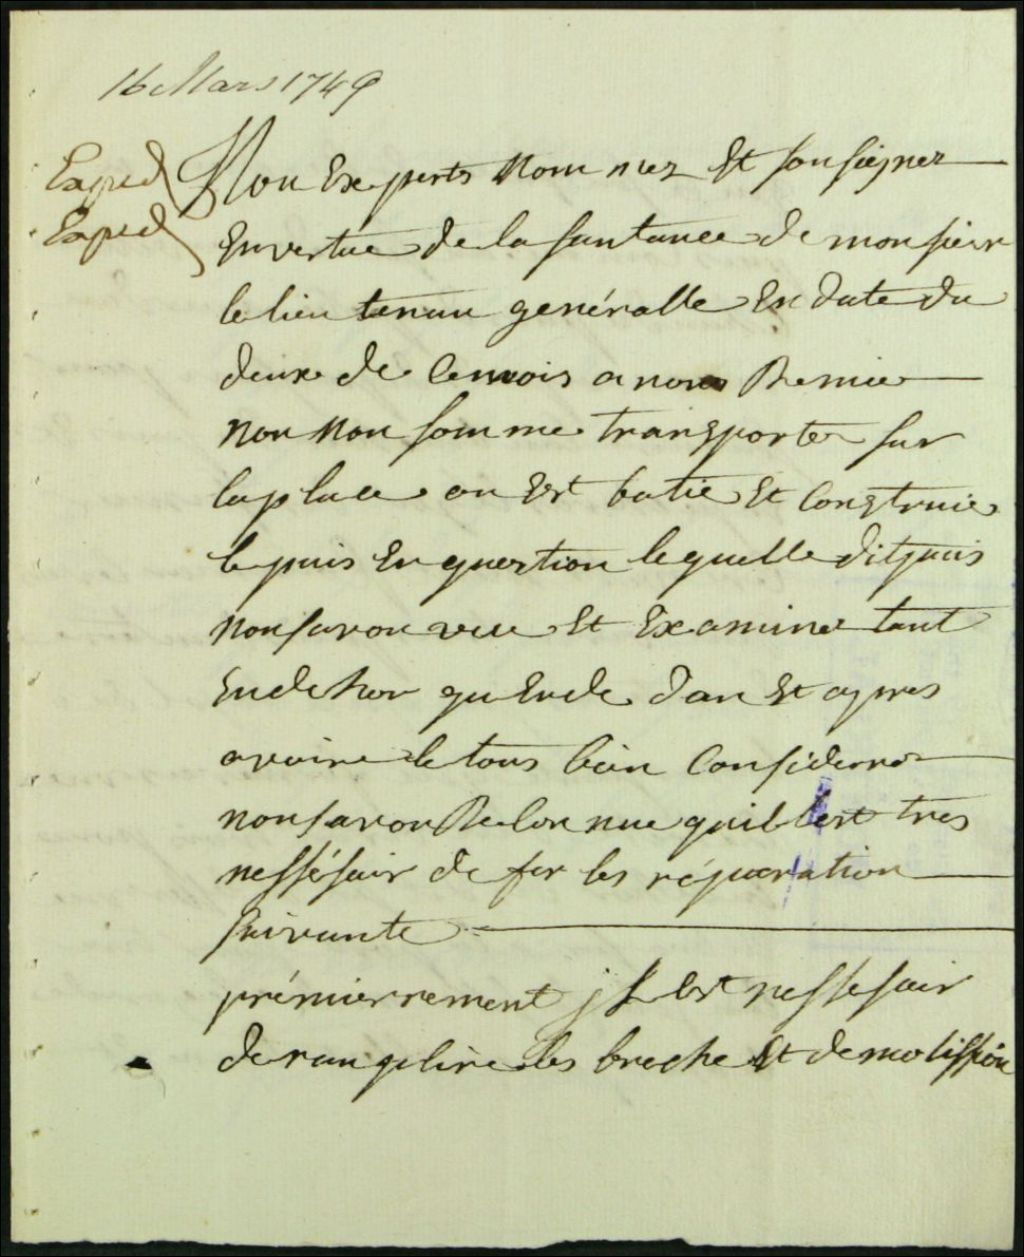 16 Mars 1749
Exped
Exped
Nou Experts Nommez Et sousignez
En vertue de la santance de monsieur
le lieutenan genéralle En date du
deuxe de Ce mois a nous Remie
Nou Nou somme transporter sur
la place ou Est batie Et Construie
le puis En question le quelle dit puis
nousavon vue Et Examiner tant
En dehor qu En de dan Et apres
avoire le tous bien Considerer
nousavon Reconnue quil lest tres
nessésair de fer les réparation
suivante
prémierrement jl Est nessesair
de ranplire les breche Et demolission